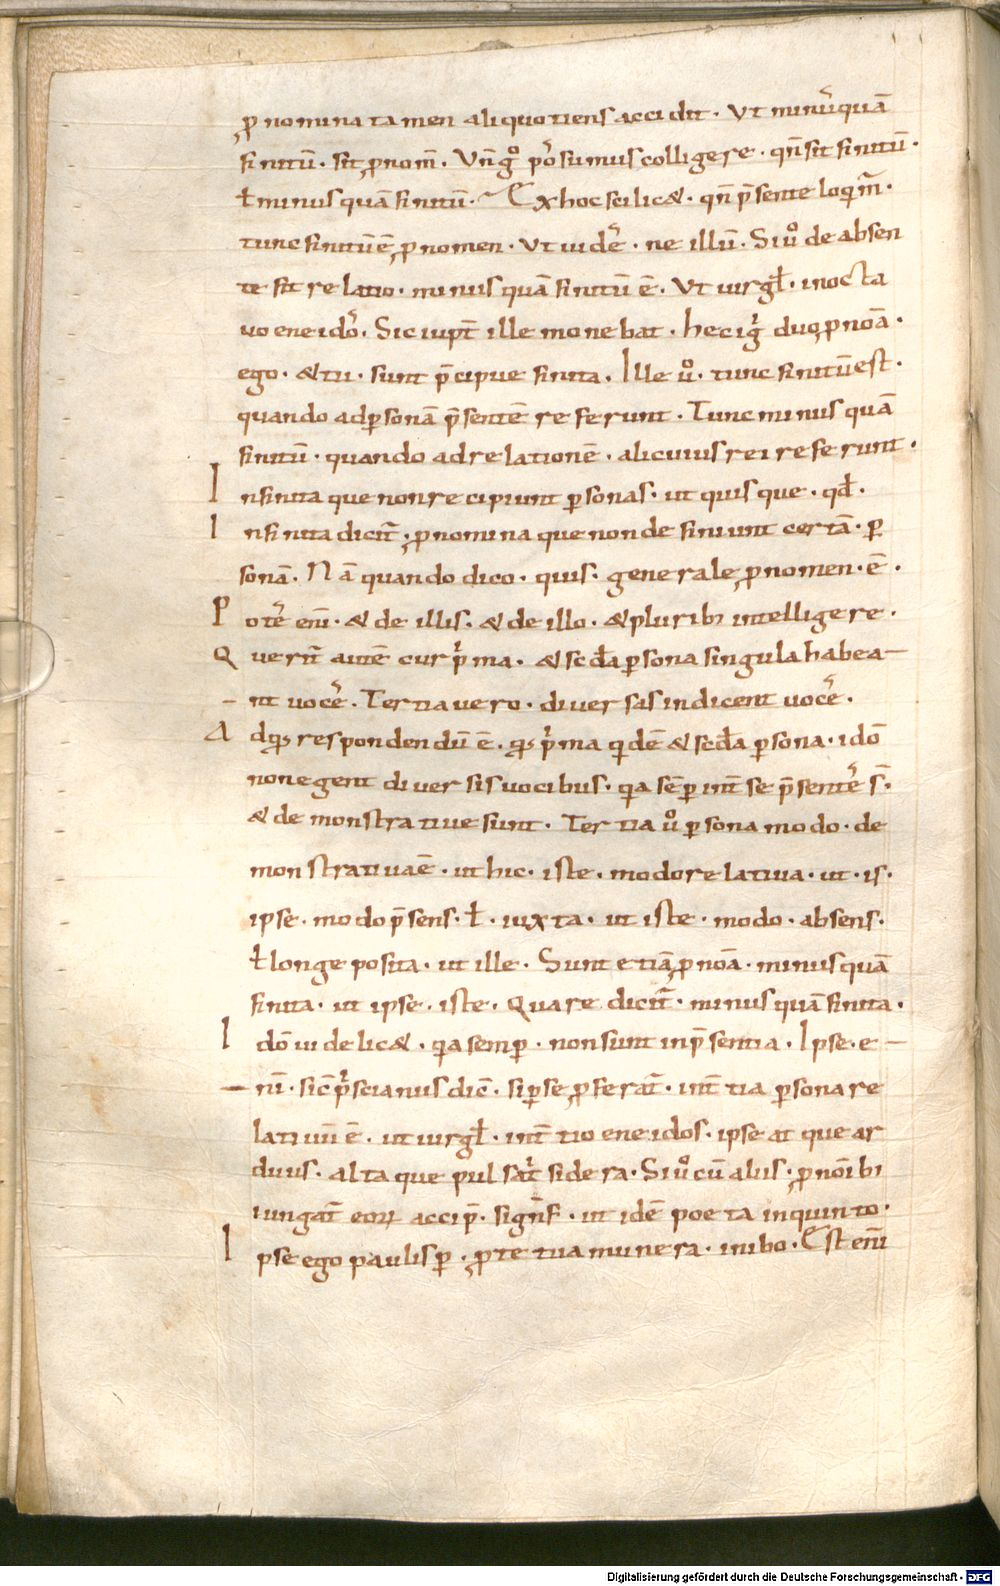 ꝓnomina tamen aliquotiens accidit · Ut minus̄quā
finitū · sit ꝓnom̄ · Un̄ gͦ pōsumus colligere · qn̄ sit finitū ·
ł minus quā finitū · Ex hoc scilic& · qn̄ p̄sente loq̇m̄ ·
tunc finitū ē ꝓnomen · Ut uidē · ne illū · Si uͦ de absen
te fit relatio · minus quā finitū ē · Ut uirgł · in octa
uo eneidō · Sic iupt̄ ille monebat · hec igͥ duo ꝓnoā ·
ego · &tu · sunt p̄cipue finita · Ille uͦ · tunc finitū est ·
quando ad ꝑsonā p̄sentē referunt · Tunc minus quā
finitū · quando ad relationē · alicuius rei referunt ·
Infinita que non recipiunt ꝑsonas · ut quis que · qđ ·
Infinita dicit̄ · ꝓnomina que non definiunt certā · ꝑ
sonā · Nā quando dico · quis · generale ꝓnomen · ē ·
Potē eni · & de illis · & de illo · & pluribꝫ intelligere ·
Querit̄ autē cur pͥma · & scđa ꝑsona singula habea–
– nt uocē · Tertia uero · diuersas indicent uocē ·
Adqꝫ respondendū ē · qꝫ pͥma qͥdē & scđa ꝑsona · idō
non egent diuersis uocibus · qa sēꝑ int̄ se p̄sentē s̄ ·
& demonstratiue sunt · Tertia uͦ ꝑsona modo · de
monstratiua ē · ut hic · iste · modo relatiua · ut · is ·
ipse · modo p̄sens · ł · iuxta · ut iste · modo · absens ·
ł longe posita · ut ille · Sunt etiā ꝓnoā · minus quā
finita · ut ipse · iste · Quare dicit̄ · minus quā finita ·
Idō uidelic& · qa semꝑ · non sunt in p̄sentia · Ipse · e–
– nī · sic̄ pͥscianus dic̄ · si ꝑ se ꝓferat̄ · in t̄tia ꝑsona re
latiuū ē · ut uirgł · in t̄tio eneidos · ipse at que ar
duus · alta que pulsat̄ sidera · Si uͦ cū aliis · ꝓnōibꝫ
iungat̄ eoꝝ accip̄ · signif̄ · ut idē poeta in quinto ·
Ipse ego paulisꝑ · ꝓ te tua munera · inibo · Est enī
Digitalisierung gefördert durch die Deutsche Forschungsgemeinschaft · DFG